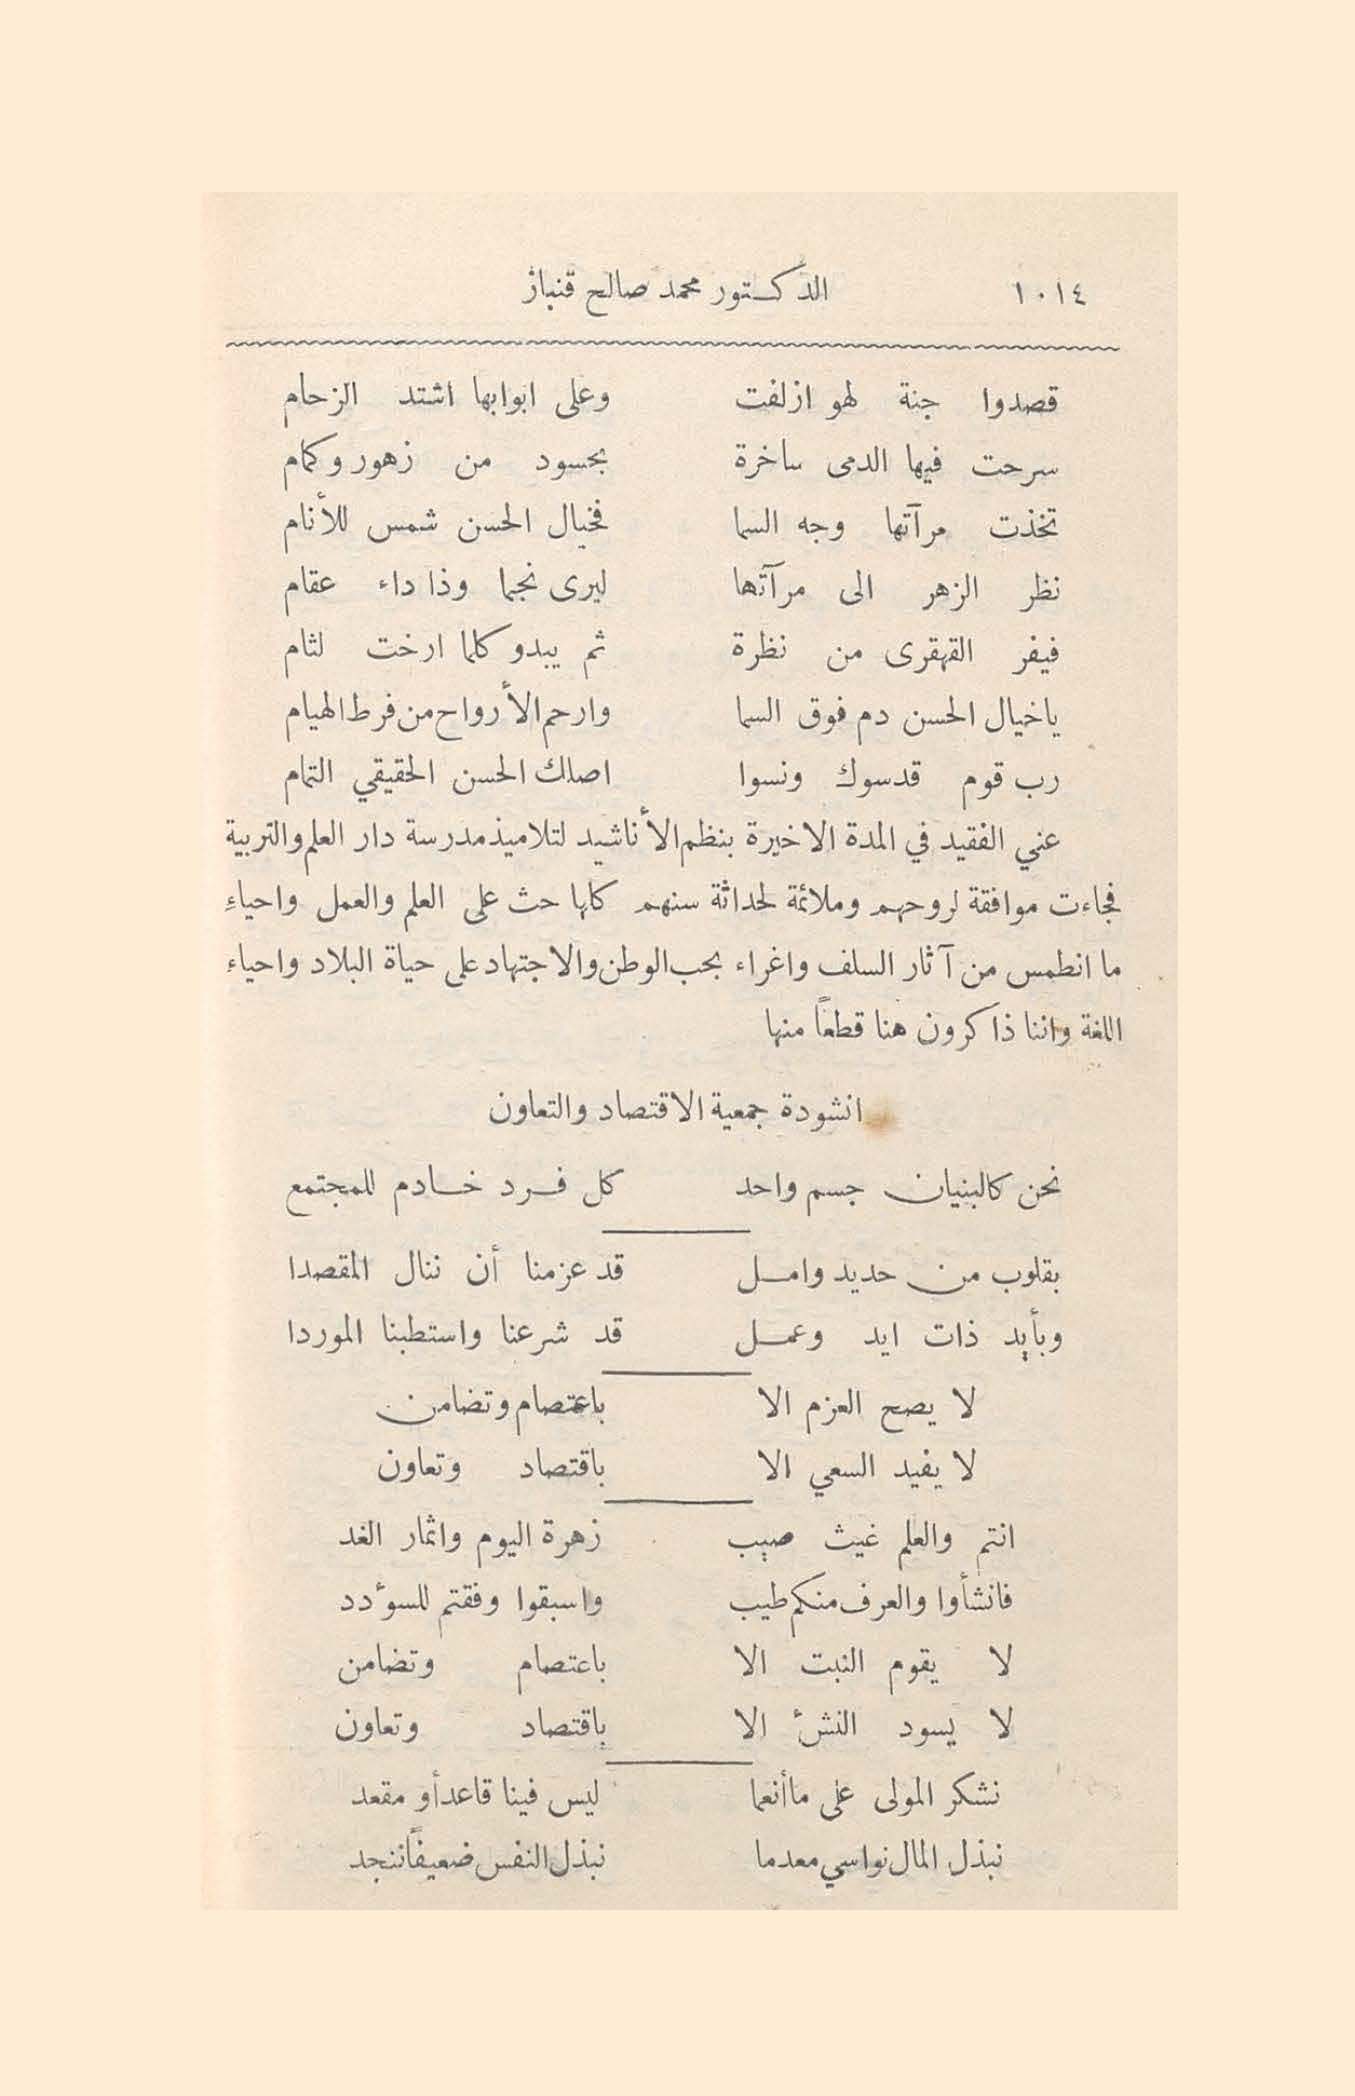 ١٠١٤ الدكتور محمد صالح قنباز
قصدوا جنة لهو ازلفت وعلى ابوابها اشتد الزحام
سرحت فيها الدمى ساخرة بحسود من زهور وكمام
تخذت مرآتها وجه السما فخيال الحسن شمس للأنام
نظر الزهر الى مرآتها ليرى نجما وذا داء عقام
فيفر القهقرى من نظرة ثم يبدو كلما ارخت لثام
ياخيال الحسن دم فوق السما وارحم الأرواح من فرط الهيام
رب قوم قدسوك ونسوا اصلك الحسن الحقيقي التمام
عني الفقيد في المدة الاخيرة بنظم الأناشيد لتلاميذ مدرسة دار العلم والتربية
فجاءت موافقة لروحهم وملائمة لحداثة سنهم كلها حث على العلم والعمل واحياء
ما انطمس من آثار السلف واغراء بحب الوطن والاجتهاد على حياة البلاد واحياء
اللغة واننا ذاكرون هنا قطعاً منها
انشودة جمعية الاقتصاد والتعاون
نحن كالبنيان جسم واحد كل فرد خادم للمجتمع
بقلوب من حديد وامل قد عزمنا أن ننال المقصدا
وبأيد ذات ايد وعمل قد شرعنا واستطبنا الموردا
لا يصح العزم الا باعتصام وتضامن
لا يفيد السعي الا باقتصاد وتعاون
انتم والعلم غيث صيب زهرة اليوم واثمار الغد
فانشأوا والعرف منكم طيب واسبقوا وفقتم للسوءدد
لا يقوم النبت الا باعتصام وتضامن
لا يسود النشئ الا باقتصاد وتعاون
نشكر المولى على ما أنعما ليس فينا قاعد أو مقعد
نبذل المال نواسي معدما نبذل النفس ضعيفاً ننجد